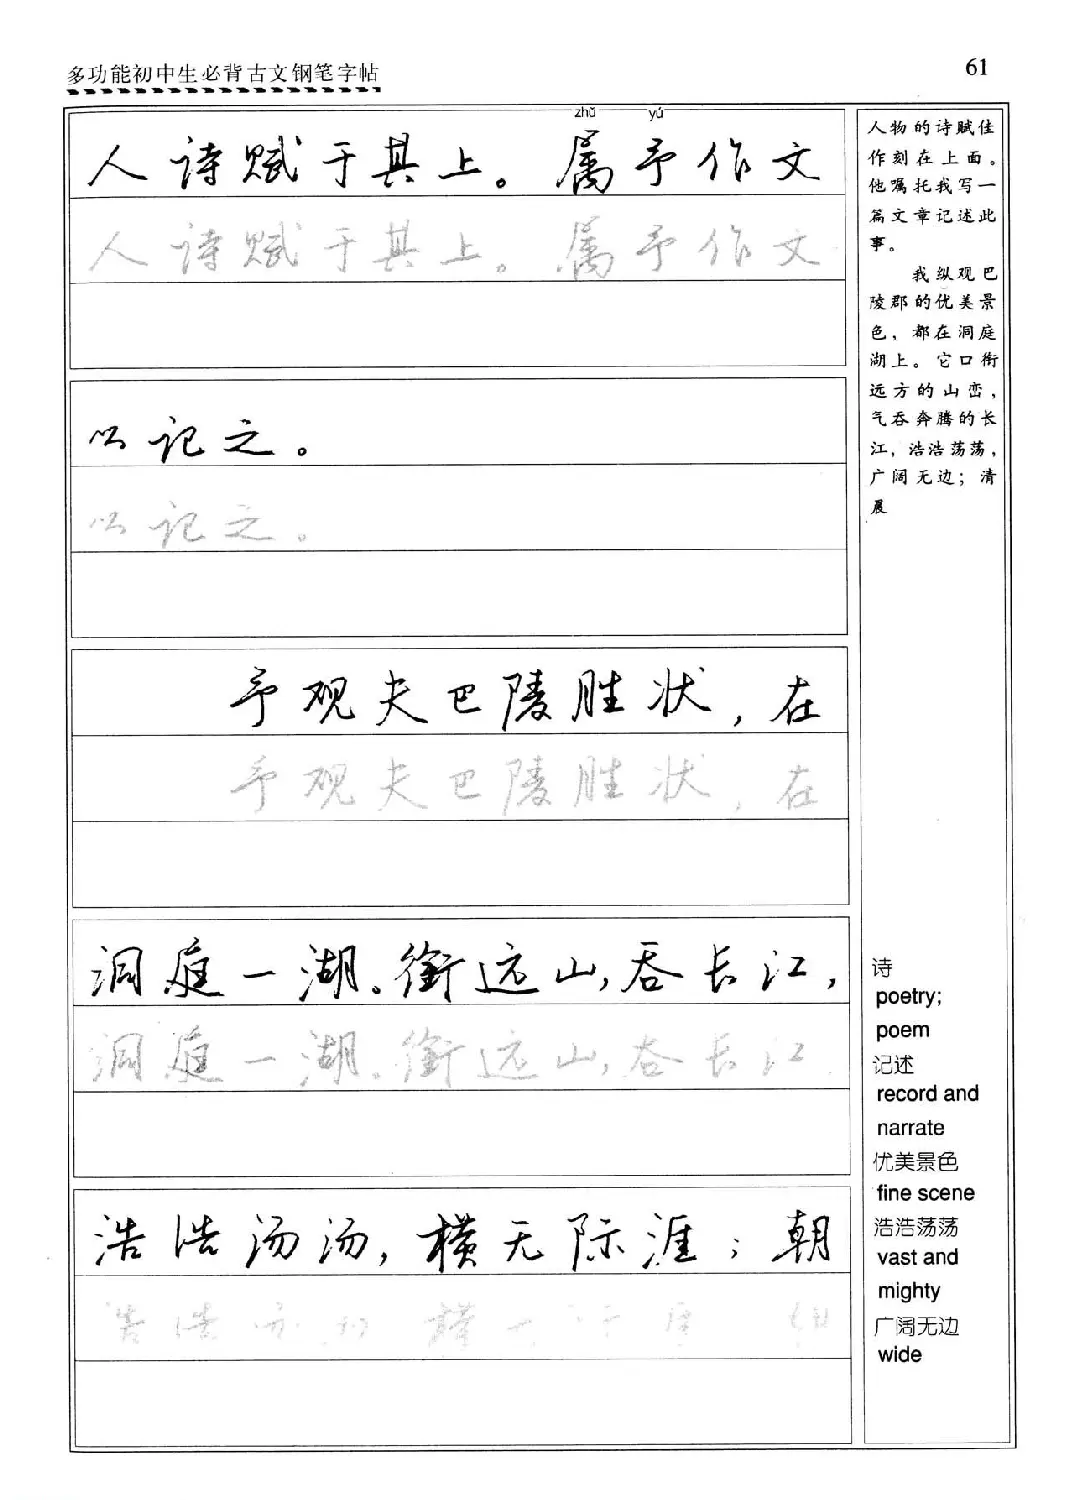 多功能初中生必背古文钢笔字帖
61
zhǔ yú
人诗赋于其上。属予作文
人诗赋于其上。属予作文
以记之。
以记之。
予观夫巴陵胜状，在
予观夫巴陵胜状，在
洞庭一湖。衔远山，吞长江，
洞庭一湖。衔远山，吞长江
浩浩汤汤，横无际涯；朝
人物的诗赋佳
作刻在上面。
他嘱托我写一
篇文章记述此
事。
我纵观巴
陵郡的优美景
色，都在洞庭
湖上。它口衔
远方的山峦，
气吞奔腾的长
江，浩浩荡荡，
广阔无边；清
晨
诗
poetry;
poem
记述
record and
narrate
优美景色
fine scene
浩浩荡荡
vast and
mighty
广阔无边
wide